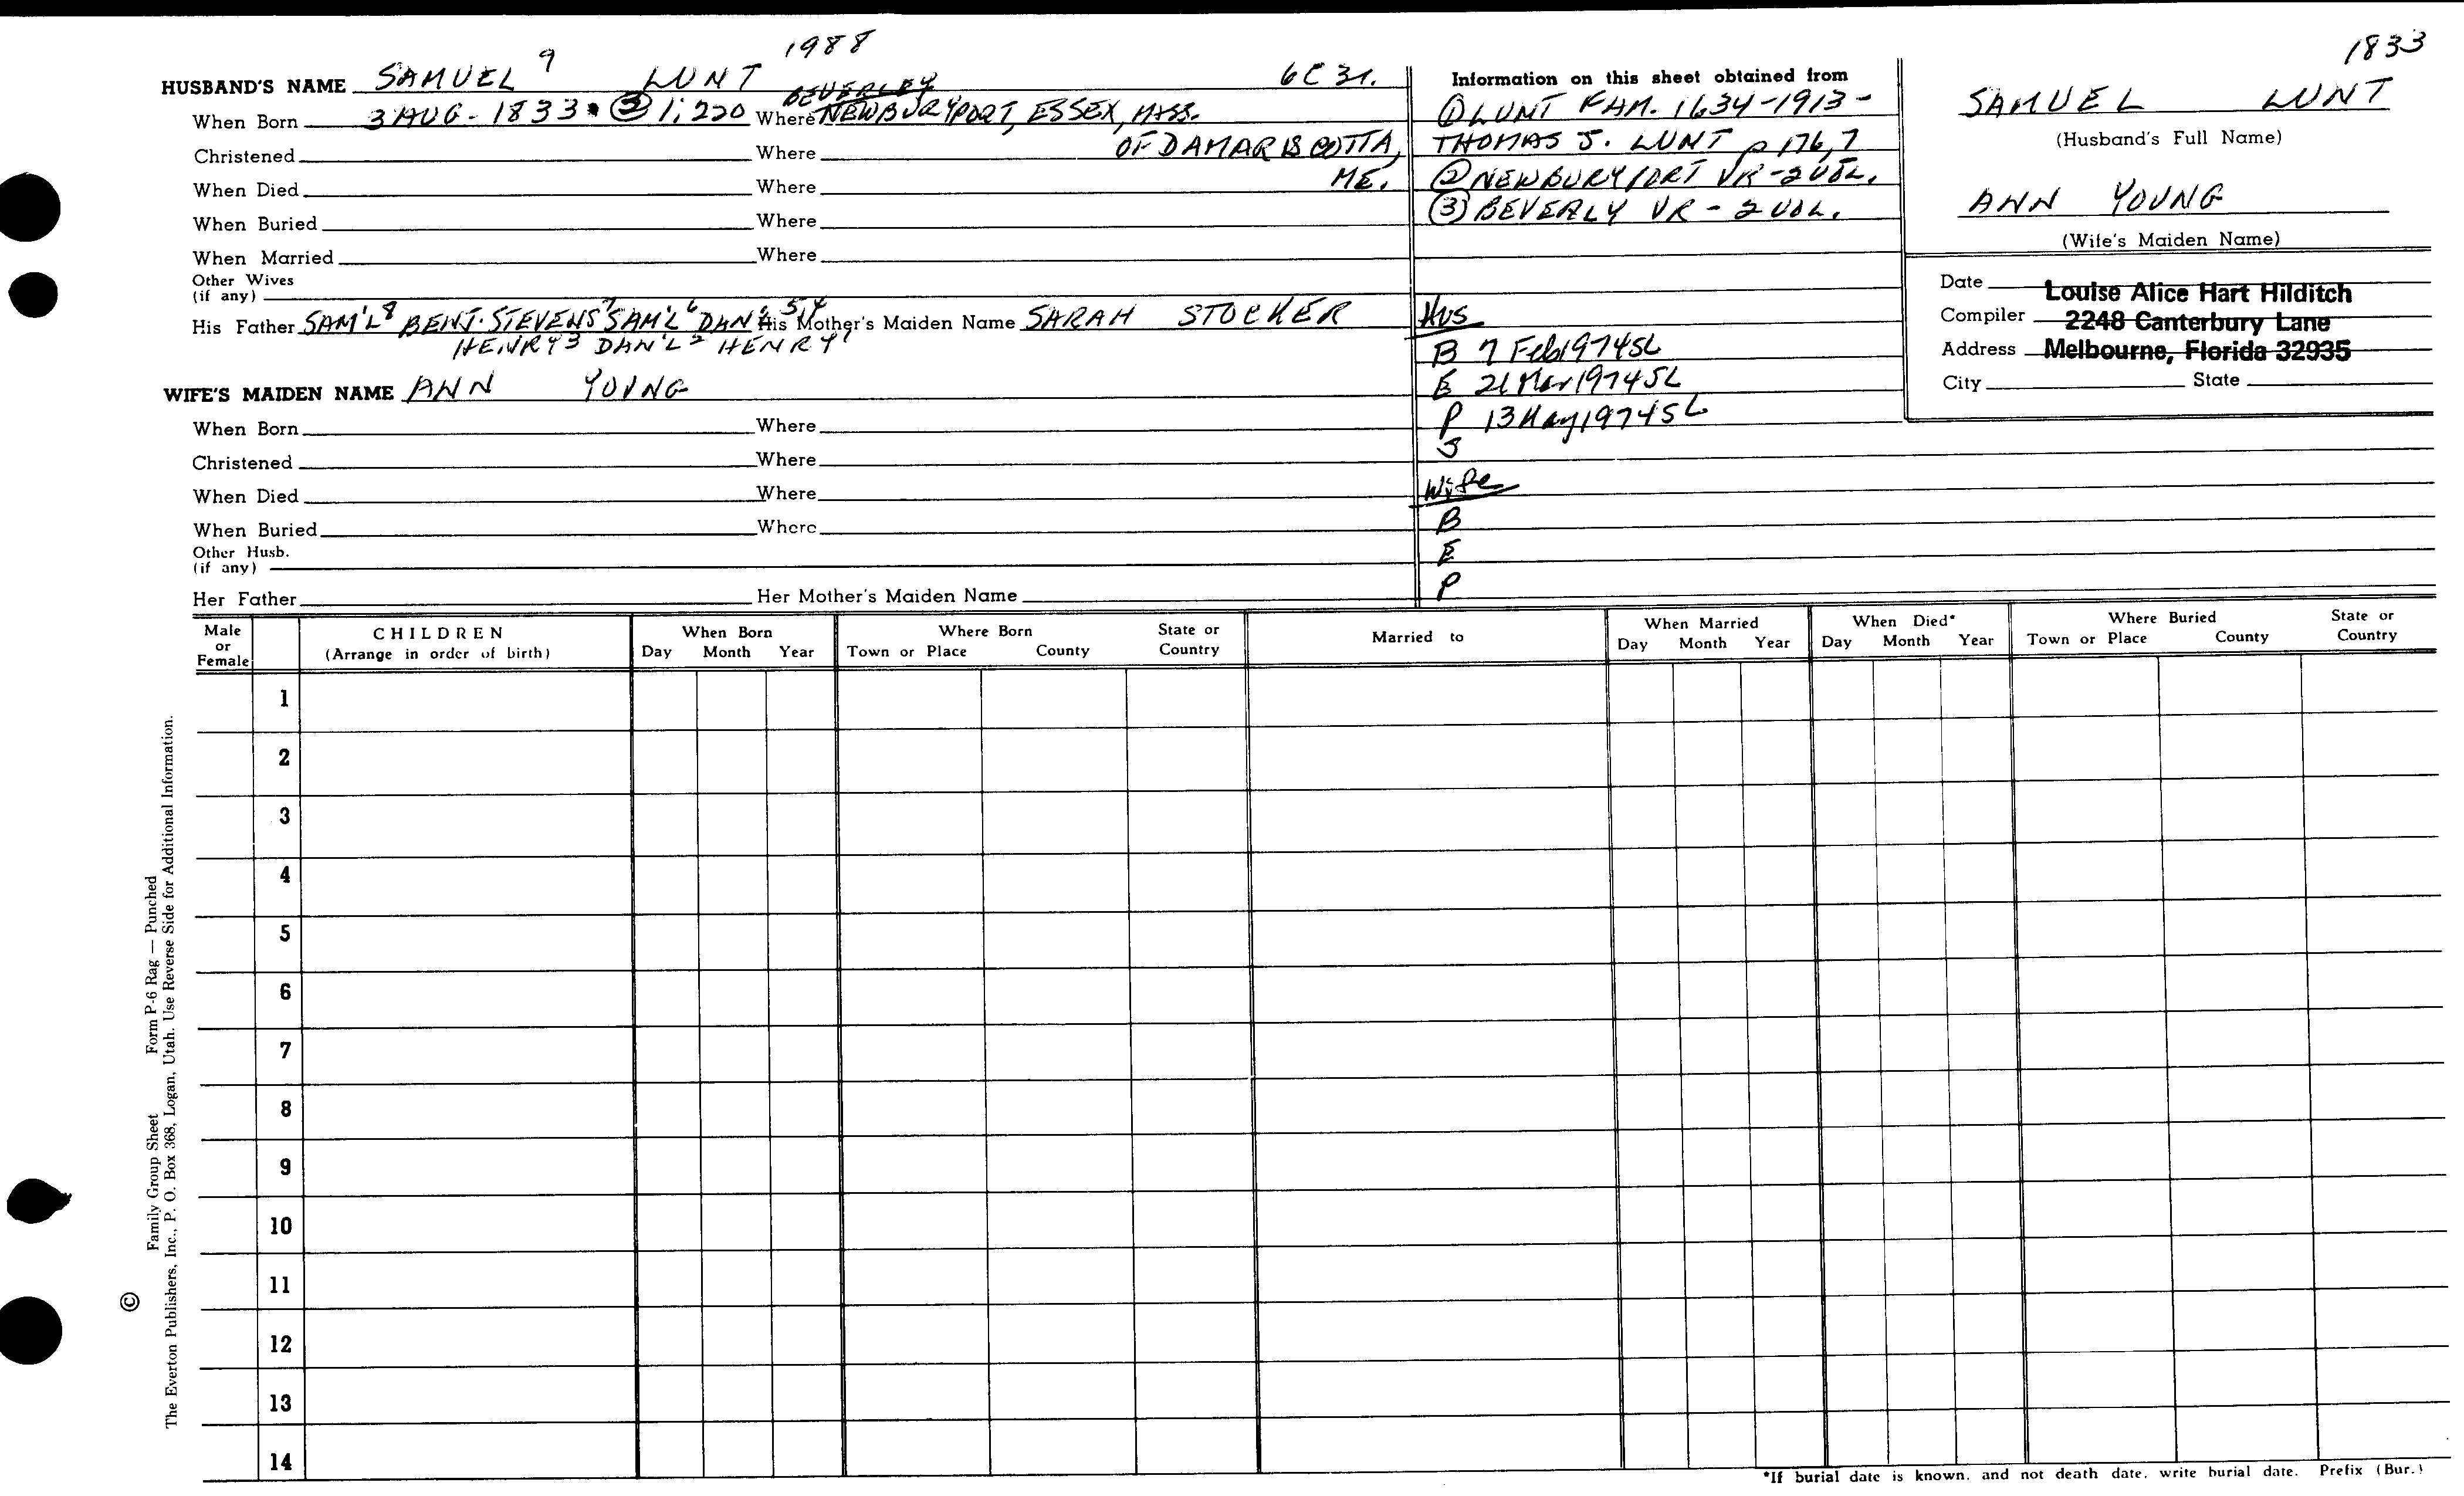 1988
1833
HUSBAND'S NAME SAMUEL 9 LUNT 6C31.
BEVERLEY
When Born 3 AUG - 1833 • ③ 1:220 Where NEWBURYPORT, ESSEX, MASS.
Christened Where OF DAMARISCOTTA,
When Died Where ME.
When Buried Where
When Married Where
Other Wives
(if any)
His Father SAM'L 8 BENJ. STEVENS 7 SAM'L 6 DAN'L 5 4 His Mother's Maiden Name SARAH STOCKER
HENRY 3 DAN'L 2 HENRY 1
WIFE'S MAIDEN NAME ANN YOUNG
When Born Where
Christened Where
When Died Where
When Buried Where
Other Husb.
(if any)
Her Father Her Mother's Maiden Name
Information on this sheet obtained from
① LUNT FAM. 1634-1913-
THOMAS J. LUNT p 176,7
② NEWBURYPORT VR - 2 VOL.
③ BEVERLY VR - 2 VOL.
Hus
B 7 Feb 1974 SL
E 21 Mar 1974 SL
P 13 May 1974 SL
S
Wife
B
E
P
SAMUEL LUNT
(Husband's Full Name)
ANN YOUNG
(Wife's Maiden Name)
Date
Louise Alice Hart Hilditch
Compiler 2248 Canterbury Lane
Address Melbourne, Florida 32935
City State
Male or Female
CHILDREN
(Arrange in order of birth)
When Born
Day Month Year
Where Born
Town or Place County State or Country
Married to
When Married
Day Month Year
When Died*
Day Month Year
Where Buried
Town or Place County State or Country
1
2
3
4
5
6
7
8
9
10
11
12
13
14
*If burial date is known, and not death date, write burial date. Prefix (Bur.)
©
Family Group Sheet Form P-6 Rag — Punched
The Everton Publishers, Inc., P. O. Box 368, Logan, Utah. Use Reverse Side for Additional Information.